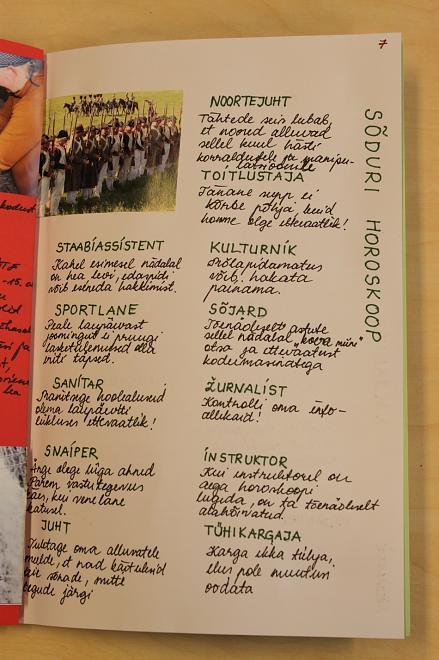 7
SÕDURI HOROSKOOP
NOORTEJUHT
Tähtede seis lubab,
et noored alluvad
sellel kuul hästi
korraldustele ja manipu-
TOITLUSTAJA
Tänane supp ei
kõrbe põhja, kuid
homme olge ettevaatlik!
STAABIASSISTENT
Kahel esimesel nädalal
on hea levi, edaspidi
võib esineda hakkimist.
KULTURNIK
võib hakata
painama.
SPORTLANE
Peale laupäevast
joomingut ei pruugi
lasketulemused olla
eriti täpsed.
SÕJARD
Tõenäoliselt astute
sellel nädalal "kova miini"
otsa ja ettevaatust
kodumasinatega
SANITAR
Plaanitsege hoolealuseid
olema laupäeviti
liikluses ettevaatlik!
ŽURNALIST
Kontrolli oma info-
allikaid!
SNAIPER
Ärge olege liiga ahned
Parem vastutegevus
täis, kui venelane
katusel.
INSTRUKTOR
Kui instruktoril on
aega horoskoopi
lugeda, on ta tõenäoliselt
alahõivatud.
JUHT
Tuletage oma alluvatele
meelde, et nad käituksid
teie sõnade, mitte
tegude järgi
TÜHIKARGAJA
Karga ikka tühja,
elus pole muutusi
oodata